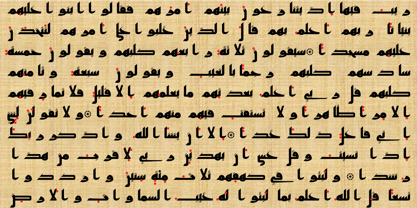 ريب فيها إذ يتنازعون بينهم أمرهم فقالوا ابنوا عليهم
بنينا ربهم أعلم بهم قال الذين غلبوا على أمرهم لنتخذن
عليهم مسجدا سيقولون ثلثة رابعهم كلبهم ويقولون خمسة
سادسهم كلبهم رجما بالغيب ويقولون سبعة وثامنهم
كلبهم قل ربي أعلم بعدتهم ما يعلمهم إلا قليل فلا تمار فيهم
إلا مراء ظاهرا ولا تستفت فيهم منهم أحدا ولا تقولن لشيء
إني فاعل ذلك غدا إلا أن يشاء الله واذكر ربك
إذا نسيت وقل عسى أن يهدين ربي لأقرب من هذا
رشدا ولبثوا في كهفهم ثلث مائة سنين وازدادوا
تسعا قل الله أعلم بما لبثوا له غيب السموات والأرض